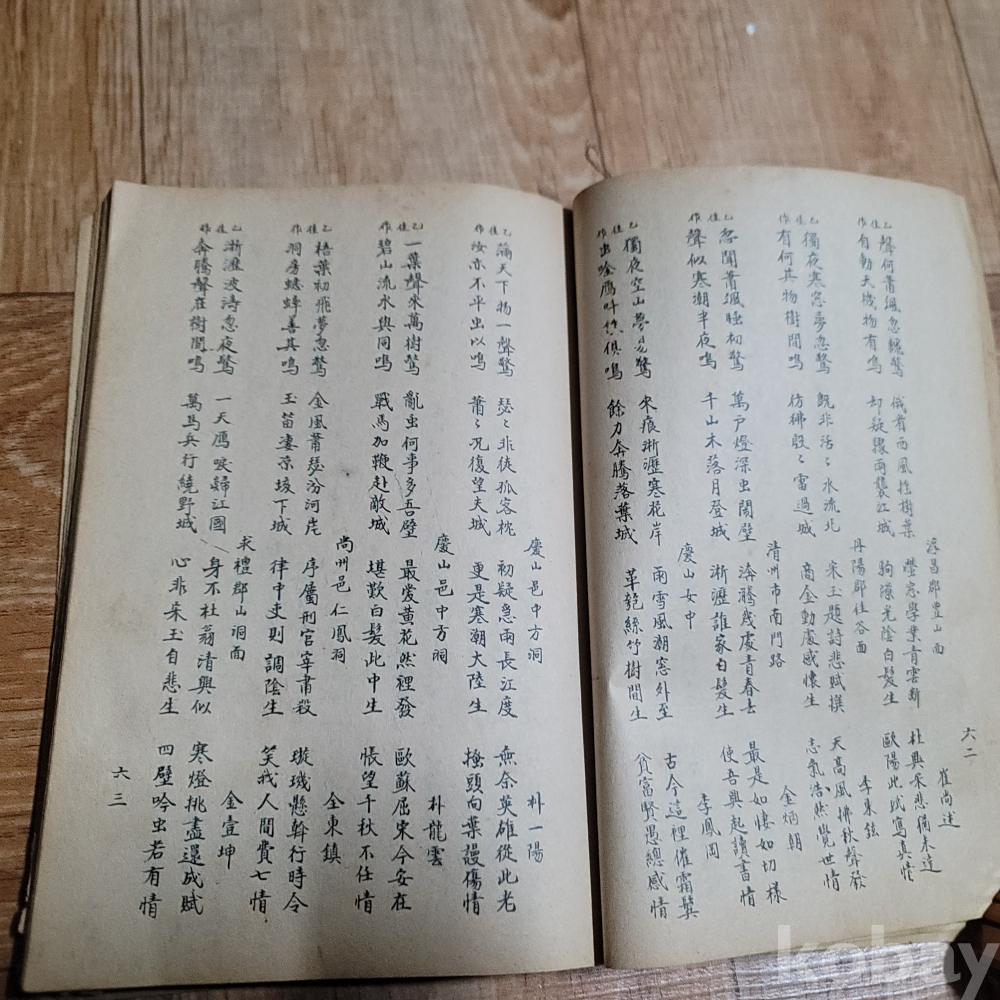 六二
淳昌郡豊山面 崔尚達
乙佳作
聲何蕭颯忽魂驚 俄看西風 樹葉 螢窓學業青雲斷 杜興宋悲猶未達
自動天機物有鳴 却疑驟雨襲江城 駒隙光陰白髮生 歐陽此賦寫真情
丹陽郡佳谷面 李東鉉
乙佳作
獨夜寒窓夢忽驚 既非活々水流北 宋玉題詩悲賦撰 天高風拂秋聲發
有何其物樹間鳴 彷彿殷々雷過城 商金動處感懷生 志氣浩然覺世情
清州市南門路 金炳朝
乙佳作
忽聞蕭颯睡初驚 萬戶燈深虫閙壁 奔騰幾處青春去 最是如悽如切樣
聲似寒潮半夜鳴 千山木落月登城 淅瀝誰家白髮生 使吾興起讀書情
慶山女中 李鳳岡
乙佳作
獨夜空山夢易驚 宋痕淅瀝寒花岸 雨雪風潮窓外至 古今這裡催霜鬢
虫唫鴈叶 俱鳴 餘力奔騰落葉城 革匏絲竹樹間生 貧富賢愚總感情
慶山邑中方洞 朴一陽
乙佳作
滿天下物一聲驚 瑟々非徒孤客枕 初疑急雨長江度 無奈英雄從此老
汝亦不平虫以鳴 蕭々況復望天城 更是寒潮大陸生 搔頭向葉謾傷情
慶山邑中方洞 朴龍雲
乙佳作
一葉聲來萬樹驚 亂虫何事多吾壁 最愛黃花然裡發 歐蘇屈宋今安在
碧山流水與同鳴 戰馬加鞭赴敵城 堪歎白髮此中生 悵望千秋不任情
尚州邑仁鳳洞 金東鎮
乙佳作
梧葉初飛夢忽驚 金風蕭瑟汾河岸 序屬刑官宰肅殺 璇璣懸斡行時令
洞房蟋蟀善其鳴 玉笛凄凉垓下城 律中夷則調陰生 笑我人間費七情
求禮郡山洞面 金壹坤
乙佳作
淅瀝波濤忽夜驚 一天鴈唳歸江國 身不杜翁清興似 寒燈挑盡還成賦
奔騰聲在樹間鳴 萬馬兵行繞野城 心非宋玉自悲生 四壁吟虫若有情
六三